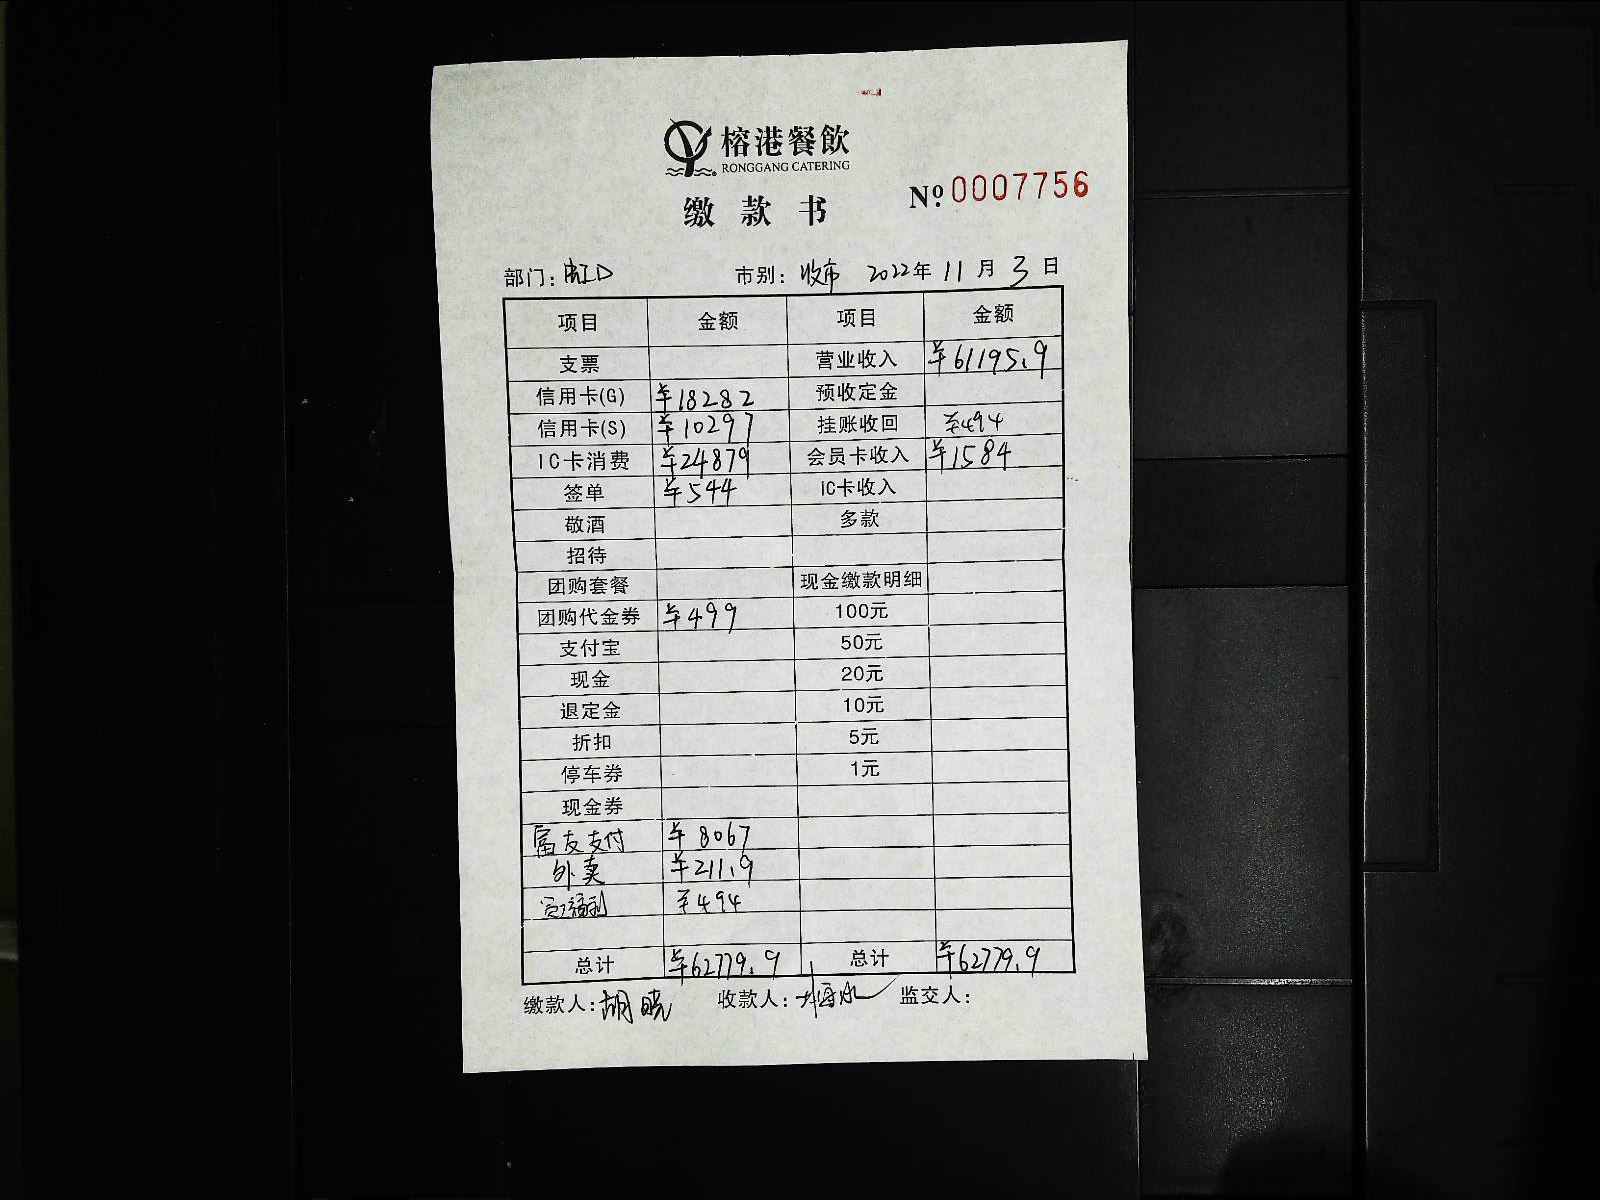 榕港餐飲
RONGGANG CATERING
缴款书 №0007756
部门：虹口 市别：收市 2022年11月3日
项目 金额 项目 金额
支票 营业收入 ¥61195.9
信用卡(G) ¥18282 预收定金
信用卡(S) ¥10297 挂账收回 ¥494
IC卡消费 ¥24879 会员卡收入 ¥1584
签单 ¥544 IC卡收入
敬酒 多款
招待
团购套餐 现金缴款明细
团购代金券 ¥499 100元
支付宝 50元
现金 20元
退定金 10元
折扣 5元
停车券 1元
现金券
富友支付 ¥8067
外卖 ¥211.9
员工福利 ¥494
总计 ¥62779.9 总计 ¥62779.9
缴款人：胡晓 收款人： 监交人：